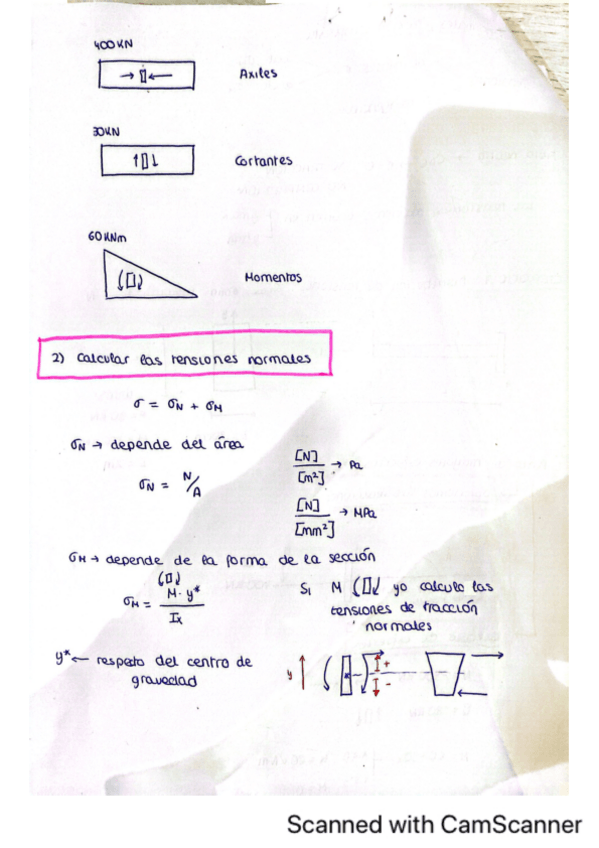 400KN
Axiles
30KN
Cortantes
60KNm
Momentos
2) Calcular las tensiones normales
σ = σN + σM
σN → depende del área
σN = N/A
[N]/[m²] → Pa
[N]/[mm²] → MPa
σM → depende de la forma de la sección
σM = M·y*/Ix
Si M yo calculo las
tensiones de tracción
normales
y* ← respecto del centro de
gravedad
y
+
-
Scanned with CamScanner